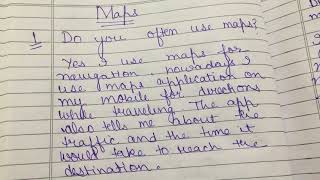 Maps
1 Do you often use maps?
Yes I use maps for
navigation. nowadays I
use maps application on
my mobile for directions
while traveling. The app
also tells me about the
traffic and the time it
would take to reach the
destination.